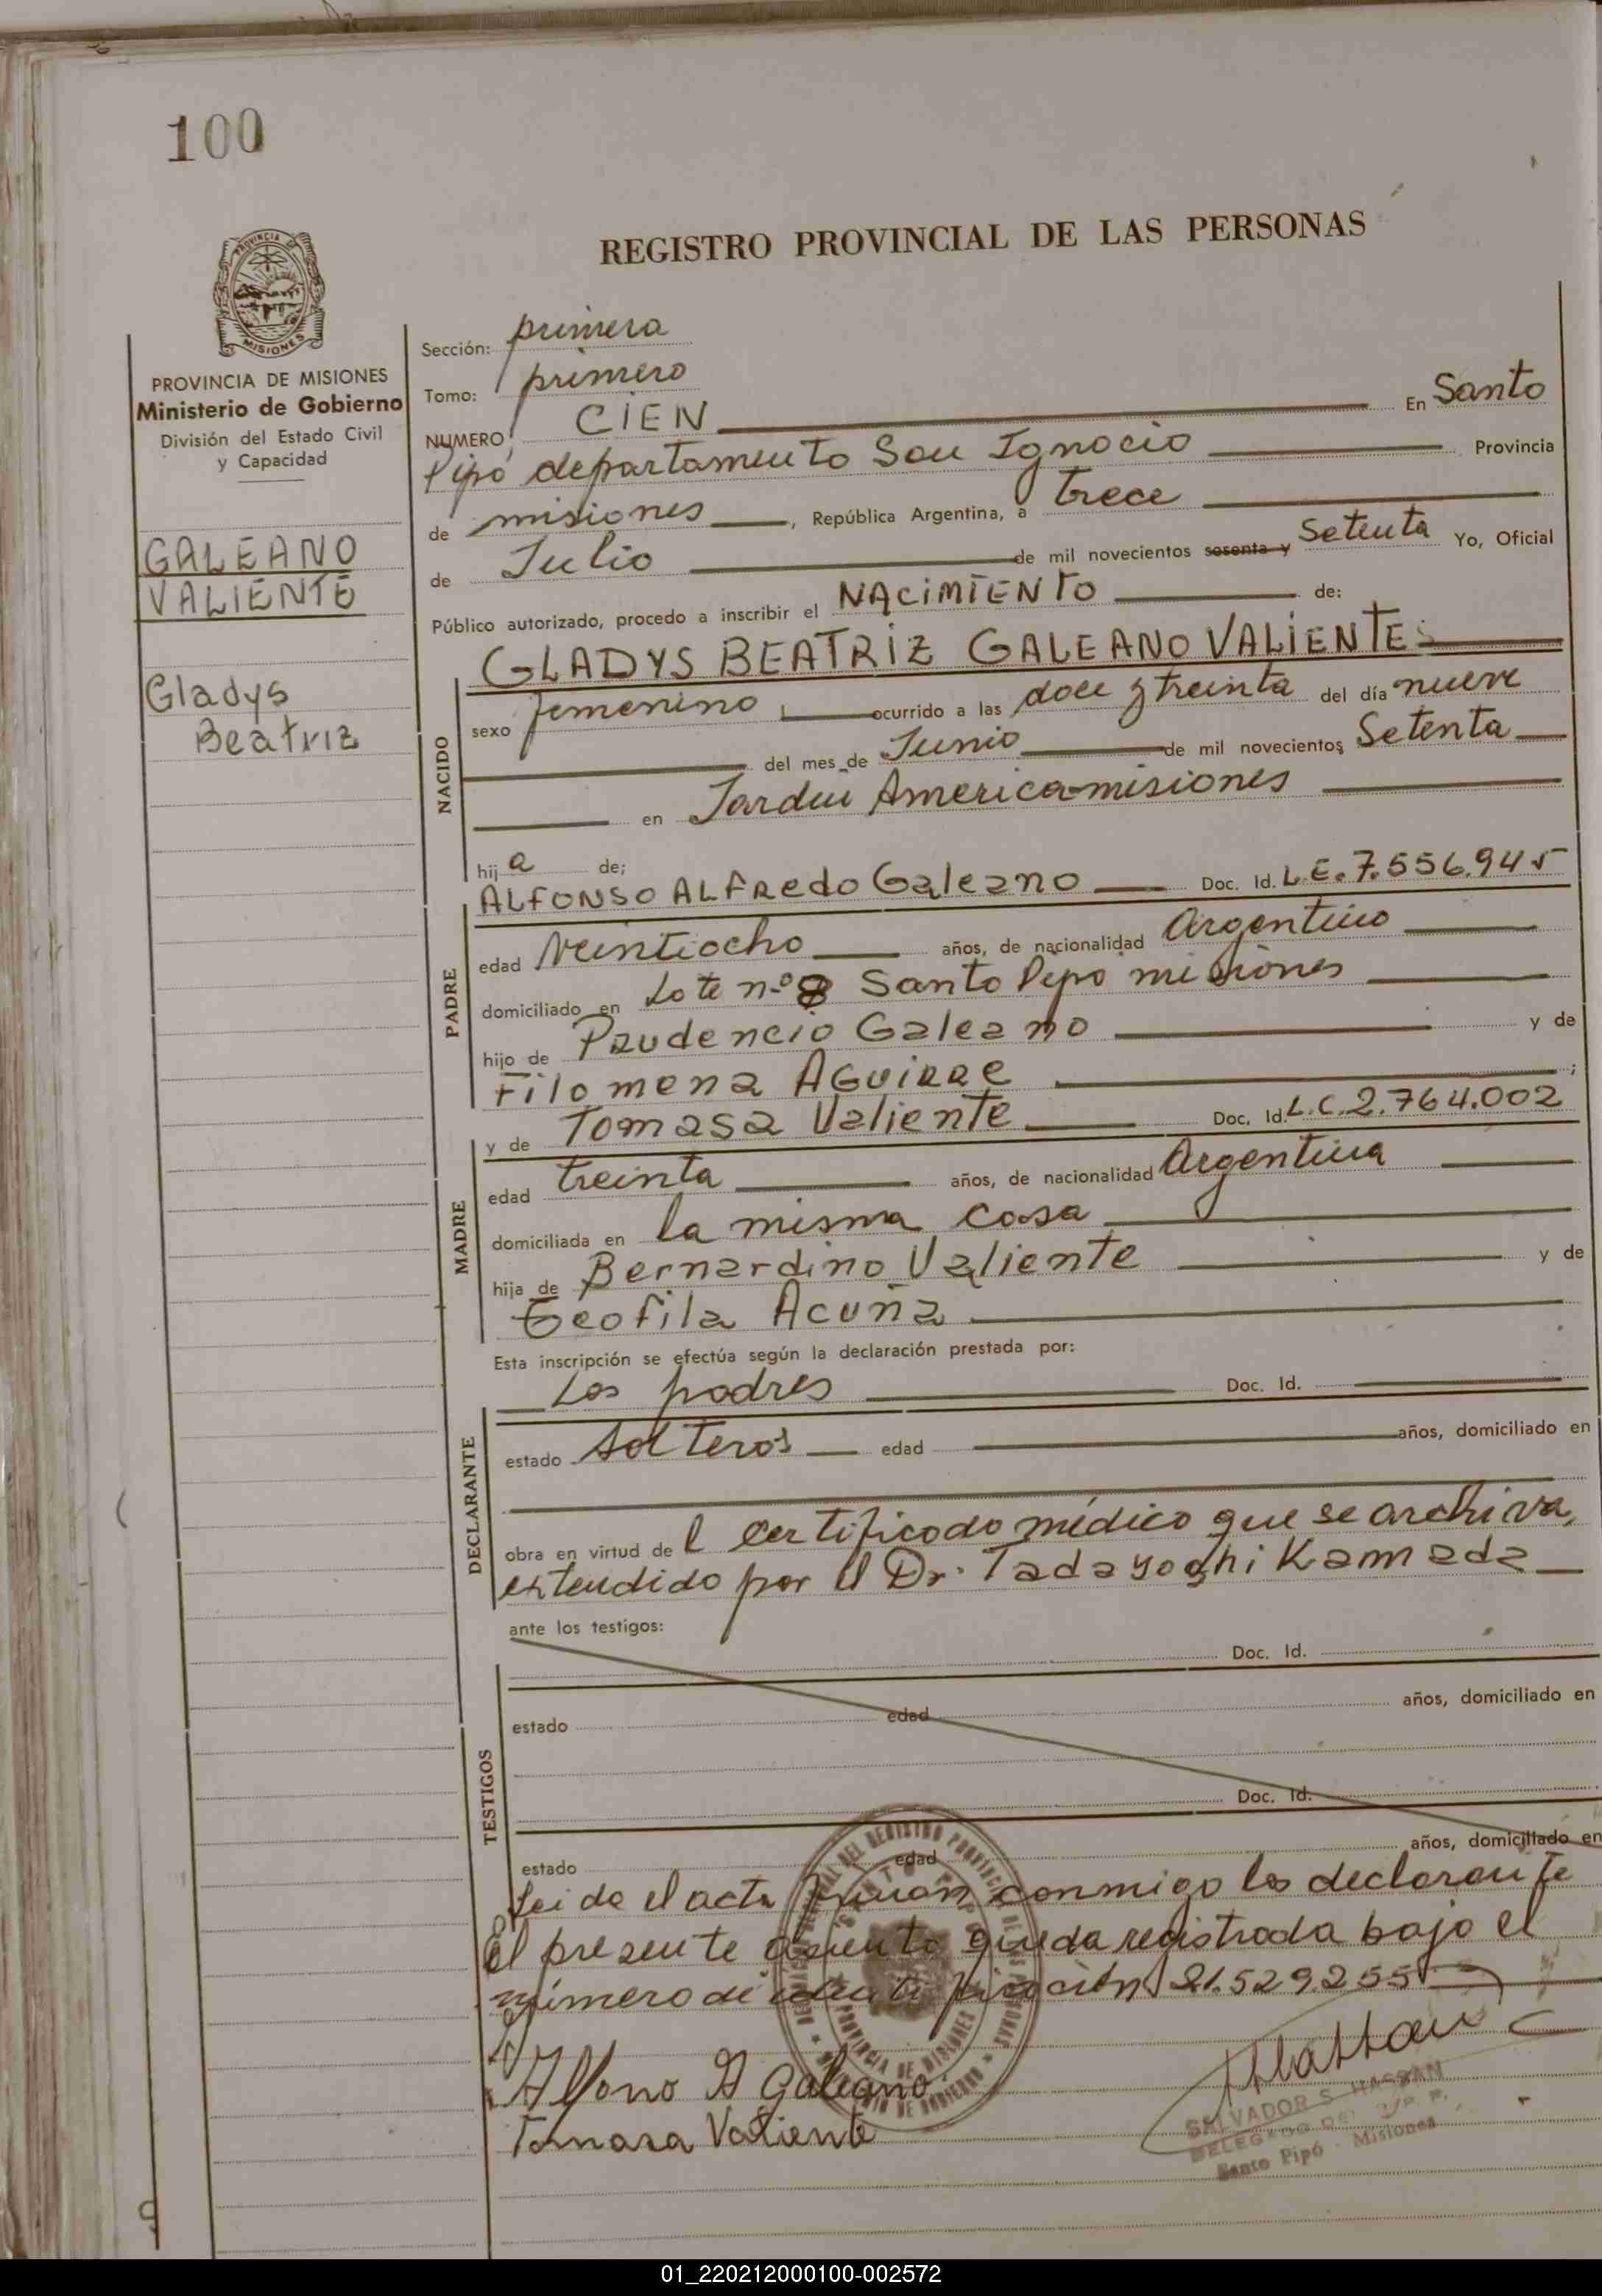 100
REGISTRO PROVINCIAL DE LAS PERSONAS
PROVINCIA DE MISIONES
Ministerio de Gobierno
División del Estado Civil
y Capacidad
GALEANO
VALIENTE
Gladys
Beatriz
Sección: primera
Tomo: primero
NUMERO CIEN En Santo
Pipó departamento San Ignacio Provincia
de misiones, República Argentina, a trece
de Julio de mil novecientos sesenta y Setenta Yo, Oficial
Público autorizado, procedo a inscribir el NACIMIENTO de:
GLADYS BEATRIZ GALEANO VALIENTE
NACIDO
sexo femenino ocurrido a las doce y treinta del día nueve
del mes de Junio de mil novecientos Setenta
en Jardin America misiones
hija de;
PADRE
ALFONSO ALFRedo Galeano Doc. Id. L.E. 7.556.945
edad Veintiocho años, de nacionalidad Argentino
domiciliado en Lote nº 8 Santo Pipo misiones
hijo de Prudencio Galeano y de
Filomena AGuirre ;
MADRE
y de Tomasa Valiente Doc. Id. L.C. 2.764.002
edad treinta años, de nacionalidad Argentina
domiciliada en la misma casa
hija de Bernardino Valiente y de
Teofila Acuña
Esta inscripción se efectúa según la declaración prestada por:
DECLARANTE
Los padres Doc. Id.
estado solteros edad años, domiciliado en
obra en virtud del certificado médico que se archiva,
extendido por el Dr. Tadayoshi Kamada
ante los testigos:
TESTIGOS
Doc. Id.
estado edad años, domiciliado en
Doc. Id.
estado edad años, domiciliado en
Leida el acta firman conmigo los declarante
El presente asiento queda registrada bajo el
número de identificación 21.529.255
Alfonso A Galeano
Tomasa Valiente
SALVADOR S. HASSAN
DELEGADO DEL R.P.P.
Santo Pipó - Misiones
01_220212000100-002572